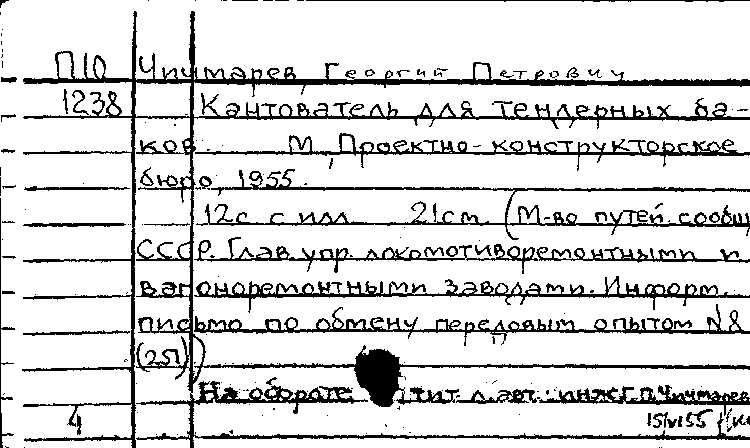 П10 Чичмарев, Георгий Петрович
1238 Кантователь для тендерных ба-
ков. М, Проектно-конструкторское
бюро, 1955.
12с. с илл. 21см. (М-во путей сообщ
СССР. Глав. упр. локомотиворемонтными и
вагоноремонтными заводами. Информ.
письмо по обмену передовым опытом №8
(251))
На обороте тит. л. авт.: инж. Г.П. Чичмарев
4 15/VI55